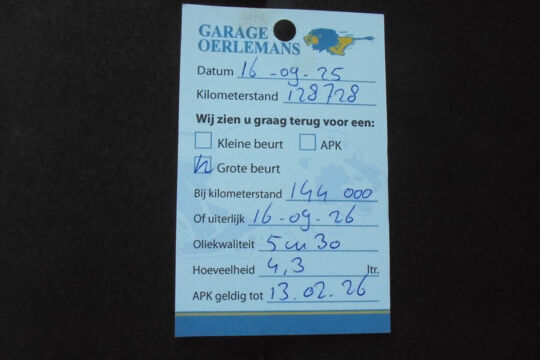 GARAGE
OERLEMANS
Datum 16-09-25
Kilometerstand 128728
Wij zien u graag terug voor een:
Kleine beurt APK
Grote beurt
Bij kilometerstand 144 000
Of uiterlijk 16-09-26
Oliekwaliteit 5w30
Hoeveelheid 4,3 ltr.
APK geldig tot 13.02.26